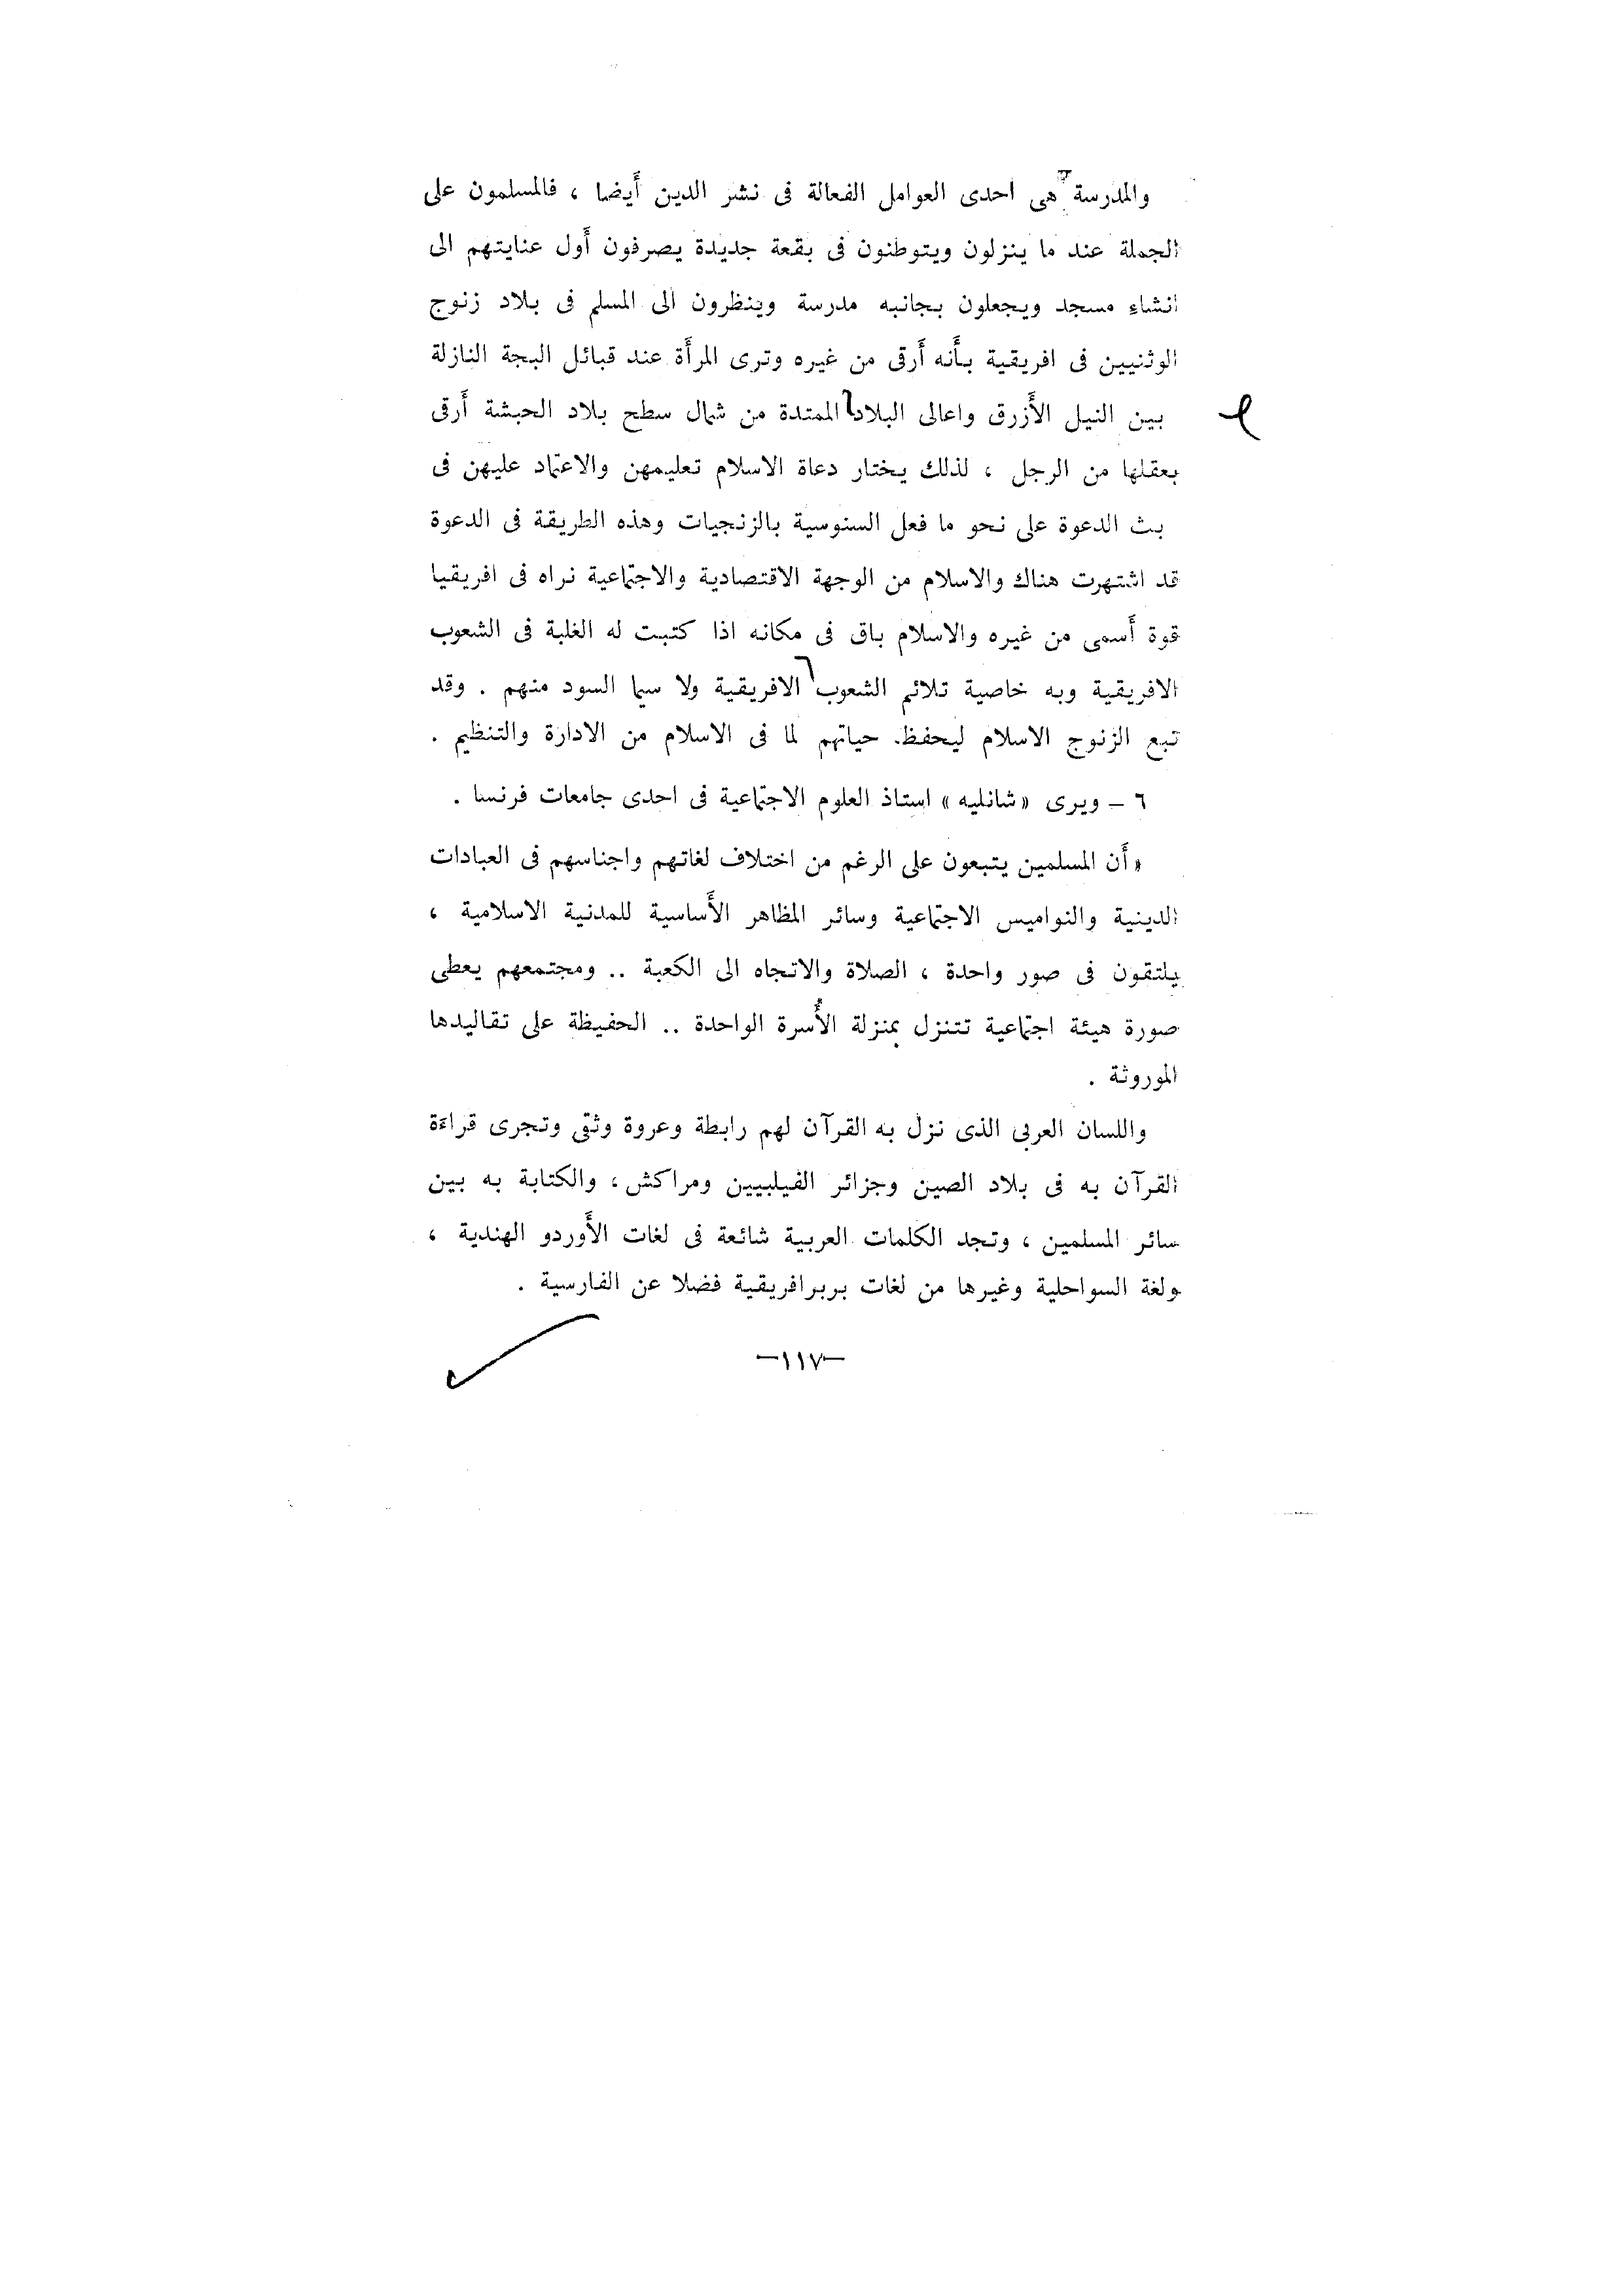 والمدرسة هى احدى العوامل الفعالة فى نشر الدين أيضا ، فالمسلمون على
الجملة عند ما ينزلون ويتوطنون فى بقعة جديدة يصرفون أول عنايتهم الى
انشاء مسجد ويجعلون بجانبه مدرسة وينظرون الى المسلم فى بلاد زنوج
الوثنيين فى افريقية بأنه أرقى من غيره وترى المرأة عند قبائل البجة النازلة
بين النيل الأزرق واعالى البلاد الممتدة من شمال سطح بلاد الحبشة أرقى
بعقلها من الرجل ، لذلك يختار دعاة الاسلام تعليمهن والاعتماد عليهن فى
بث الدعوة على نحو ما فعل السنوسية بالزنجيات وهذه الطريقة فى الدعوة
قد اشتهرت هناك والاسلام من الوجهة الاقتصادية والاجتماعية نراه فى افريقيا
قوة أسمى من غيره والاسلام باق فى مكانه اذا كتبت له الغلبة فى الشعوب
الافريقية وبه خاصية تلائم الشعوب الافريقية ولا سيما السود منهم . وقد
تبع الزنوج الاسلام ليحفظ حياتهم لما فى الاسلام من الادارة والتنظيم .
٦ – ويرى «شانليه» استاذ العلوم الاجتماعية فى احدى جامعات فرنسا .
«أن المسلمين يتبعون على الرغم من اختلاف لغاتهم واجناسهم فى العبادات
الدينية والنواميس الاجتماعية وسائر المظاهر الأساسية للمدنية الاسلامية ،
يلتقون فى صور واحدة ، الصلاة والاتجاه الى الكعبة .. ومجتمعهم يعطى
صورة هيئة اجتماعية تتنزل بمنزلة الأسرة الواحدة .. الحفيظة على تقاليدها
الموروثة .
واللسان العربى الذى نزل به القرآن لهم رابطة وعروة وثقى وتجرى قراءة
القرآن به فى بلاد الصين وجزائر الفيلبيين ومراكش ، والكتابة به بين
سائر المسلمين ، وتجد الكلمات العربية شائعة فى لغات الأوردو الهندية ،
ولغة السواحلية وغيرها من لغات بربرافريقية فضلا عن الفارسية .
–١١٧–